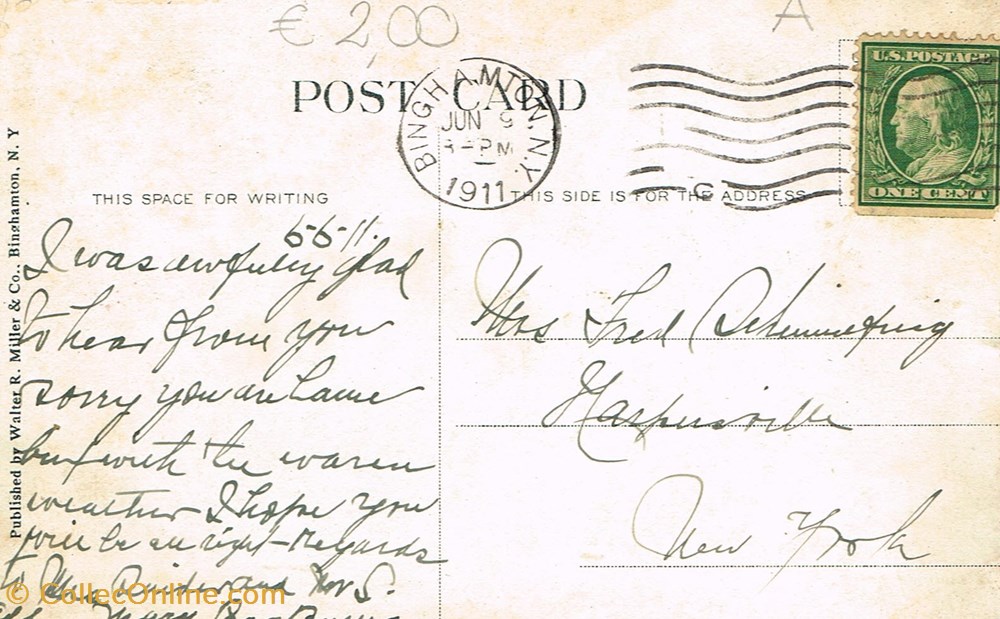 € 2,00
A
POST CARD
BINGHAMTON, N.Y.
JUN 9
PM
1911
U.S. POSTAGE
ONE CENT
C
THIS SPACE FOR WRITING
THIS SIDE IS FOR THE ADDRESS
Published by Walter R. Miller & Co., Binghamton, N. Y
I was awfully glad
to hear from you
sorry you are lame
but with the warm
weather I hope you
will be all right - Regards
to Mrs and Mr S.
Mrs Fred
Harpersville
New York
© CollecOnline.com